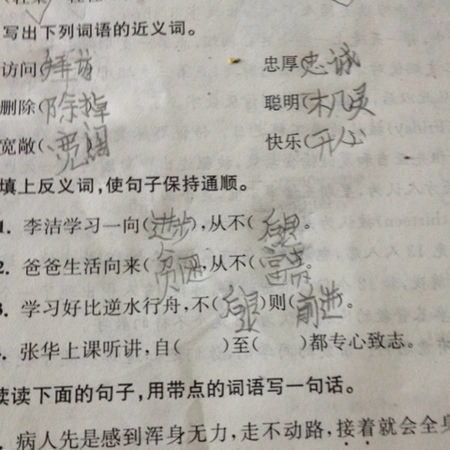 写出下列词语的近义词。
访问(拜访) 忠厚(忠诚)
删除(除掉) 聪明(机灵)
宽敞(宽阔) 快乐(开心)
填上反义词,使句子保持通顺。
1. 李洁学习一向(进步),从不(后退)。
2. 爸爸生活向来( ),从不( )。
3. 学习好比逆水行舟,不(后退)则(前进)。
. 张华上课听讲,自( )至( )都专心致志。
读读下面的句子,用带点的词语写一句话。
. 病人先是感到浑身无力,走不动路,接着就会全身